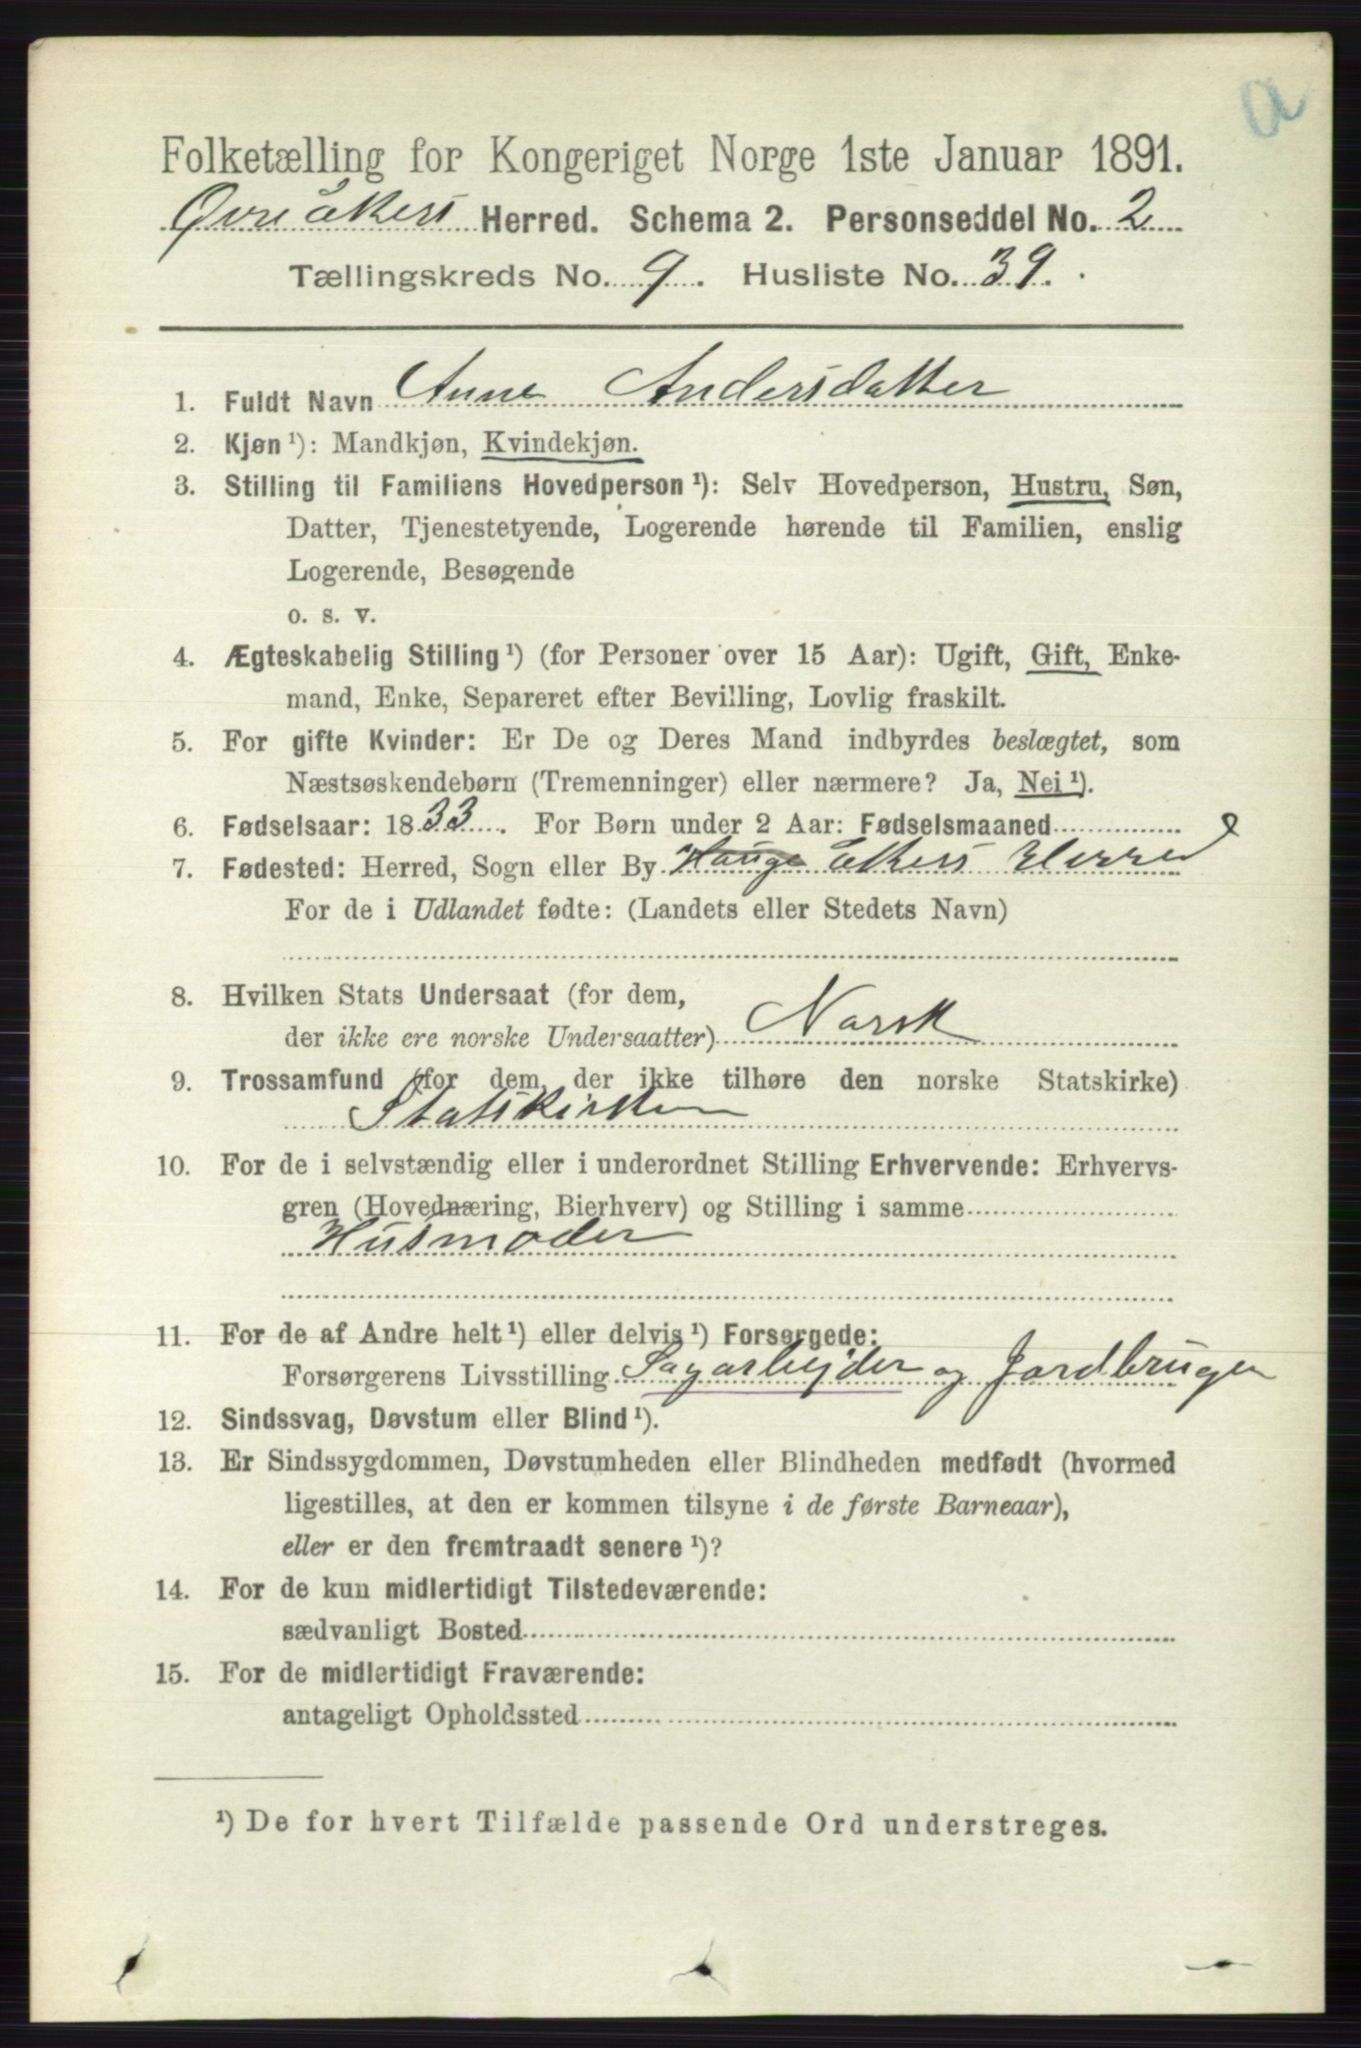 a
Folketælling for Kongeriget Norge 1ste Januar 1891.
Øvre Ekers Herred. Schema 2. Personseddel No. 2
Tællingskreds No. 9. Husliste No. 39.
1. Fuldt Navn Anne Andersdatter
2. Kjøn ¹): Mandkjøn, Kvindekjøn.
3. Stilling til Familiens Hovedperson ¹): Selv Hovedperson, Hustru, Søn,
Datter, Tjenestetyende, Logerende hørende til Familien, enslig
Logerende, Besøgende
o. s. v.
4. Ægteskabelig Stilling ¹) (for Personer over 15 Aar): Ugift, Gift, Enke-
mand, Enke, Separeret efter Bevilling, Lovlig fraskilt.
5. For gifte Kvinder: Er De og Deres Mand indbyrdes beslægtet, som
Næstsøskendebørn (Tremenninger) eller nærmere? Ja, Nei ¹).
6. Fødselsaar: 1833. For Børn under 2 Aar: Fødselsmaaned
7. Fødested: Herred, Sogn eller By Hauge Ekers Herred
For de i Udlandet fødte: (Landets eller Stedets Navn)
8. Hvilken Stats Undersaat (for dem,
der ikke ere norske Undersaatter) Norsk
9. Trossamfund (for dem, der ikke tilhøre den norske Statskirke)
Statskirken
10. For de i selvstændig eller i underordnet Stilling Erhvervende: Erhvervs-
gren (Hovednæring, Bierhverv) og Stilling i samme
Husmoder
11. For de af Andre helt ¹) eller delvis ¹) Forsørgede:
Forsørgerens Livsstilling Sagarbejder og Jordbruger
12. Sindssvag, Døvstum eller Blind ¹).
13. Er Sindssygdommen, Døvstumheden eller Blindheden medfødt (hvormed
ligestilles, at den er kommen tilsyne i de første Barneaar),
eller er den fremtraadt senere ¹)?
14. For de kun midlertidigt Tilstedeværende:
sædvanligt Bosted
15. For de midlertidigt Fraværende:
antageligt Opholdssted
¹) De for hvert Tilfælde passende Ord understreges.